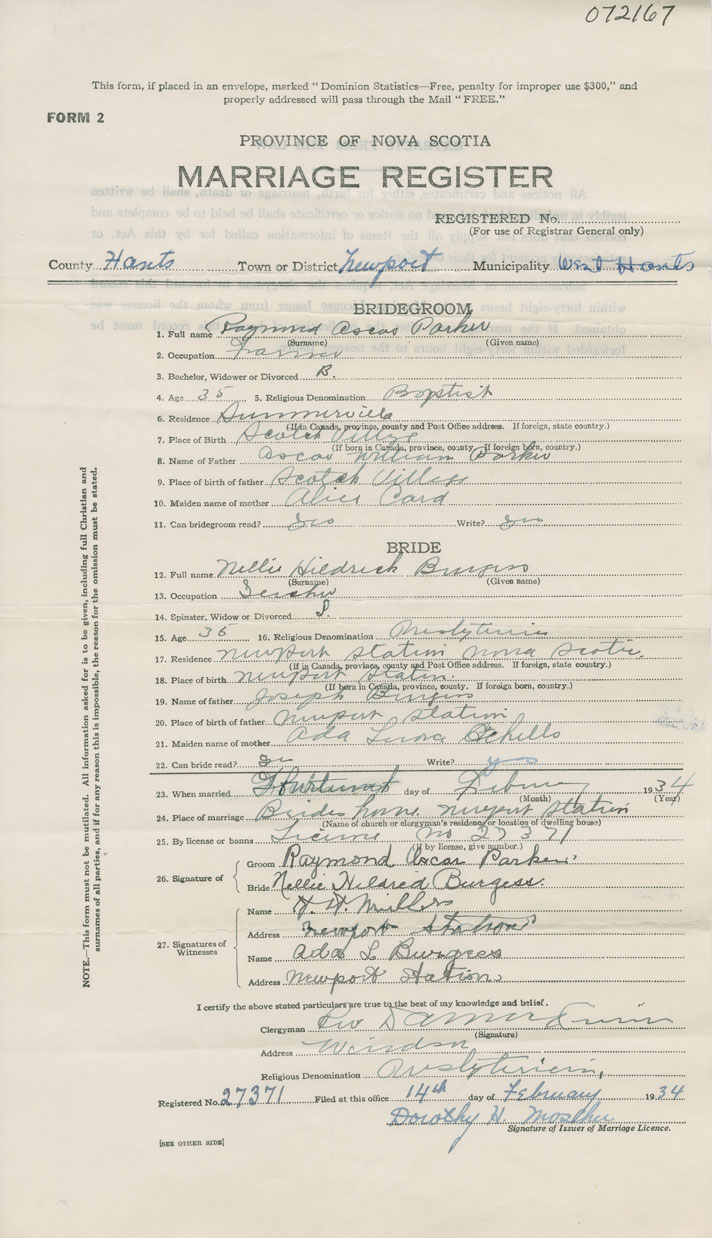 072167
This form, if placed in an envelope, marked "Dominion Statistics—Free, penalty for improper use $300," and
properly addressed will pass through the Mail "FREE."
FORM 2
PROVINCE OF NOVA SCOTIA
MARRIAGE REGISTER
REGISTERED No.
(For use of Registrar General only)
County Hants Town or District Newport Municipality West Hants
BRIDEGROOM
1. Full name Raymond Oscar Parker
(Surname) (Given name)
2. Occupation Farmer
3. Bachelor, Widower or Divorced B.
4. Age 35 5. Religious Denomination Baptist
6. Residence Summerville
(If in Canada, province, county and Post Office address. If foreign, state country.)
7. Place of Birth Scotch Village
(If born in Canada, province, county. If foreign born, country.)
8. Name of Father Oscar William Parker
9. Place of birth of father Scotch Village
10. Maiden name of mother Alice Card
11. Can bridegroom read? Yes Write? Yes
BRIDE
12. Full name Nellie Hildrick Burgess
(Surname) (Given name)
13. Occupation Teacher
14. Spinster, Widow or Divorced S.
15. Age 36 16. Religious Denomination Presbyterian
17. Residence Newport Station Nova Scotia.
(If in Canada, province, county and Post Office address. If foreign, state country.)
18. Place of birth Newport Station.
(If born in Canada, province, county. If foreign born, country.)
19. Name of father Joseph Burgess
20. Place of birth of father Newport Station
21. Maiden name of mother Ada
22. Can bride read? Yes Write? Yes
23. When married day of 1934
(Month) (Year)
24. Place of marriage Brides home Newport Station
(Name of church or clergyman's residence, or location of dwelling house)
25. By license or banns License No 27371
(If by license, give number.)
26. Signature of
Groom Raymond Oscar Parker.
Bride Nellie Hildred Burgess.
27. Signatures of Witnesses
Name H. H. Miller
Address Newport Station
Name Ada L Burgess
Address Newport Station
I certify the above stated particulars are true to the best of my knowledge and belief.
Clergyman Rev
(Signature)
Address Windsor
Religious Denomination Presbyterian,
Registered No. 27371 Filed at this office 14th day of February 1934
Dorothy H.
Signature of Issuer of Marriage Licence.
[SEE OTHER SIDE]
NOTE.—This form must not be mutilated. All information asked for is to be given, including full Christian and
surnames of all parties, and if for any reason this is impossible, the reason for the omission must be stated.